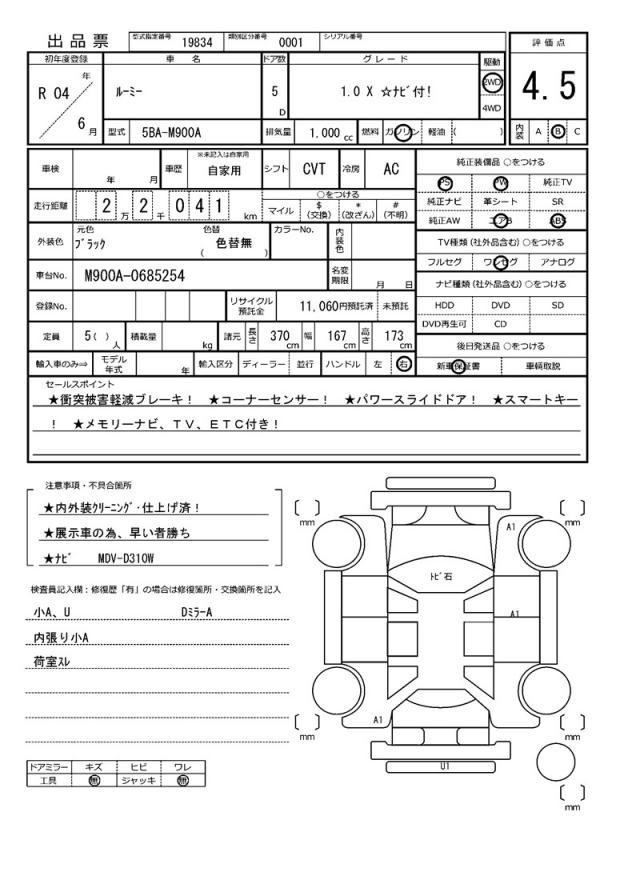 出品票 型式指定番号 19834 類別区分番号 0001 シリアル番号
評価点
4.5
内装 A B C
初年度登録 車名 ドア数 グレード 駆動
R 04 年 6 月 ルーミー 5 D 1.0 X ☆ナビ付! 2WD 4WD
型式 5BA-M900A 排気量 1.000 cc 燃料 ガソリン 軽油 ( )
車検 年 月 車歴 ※未記入は自家用 自家用 シフト CVT 冷房 AC
走行距離 2 万 2 千 0 4 1 km ○をつける
マイル $(交換) *(改ざん) #(不明)
外装色 元色 ブラック 色替 ( 色替無 ) カラーNo. 内装色
車台No. M900A-0685254 名変期限 月 日
登録No. リサイクル預託金 11,060円預託済 未預託
定員 5( ) 人 積載量 kg 諸元 長さ 370 cm 幅 167 cm 高さ 173 cm
輸入車のみ⇒ モデル年式 年 輸入区分 ディーラー 並行 ハンドル 左 右
純正装備品 ○をつける
PS PW 純正TV
純正ナビ 革シート SR
純正AW エアB ABS
TV種類(社外品含む)○をつける
フルセグ ワンセグ アナログ
ナビ種類(社外品含む)○をつける
HDD DVD SD
DVD再生可 CD
後日発送品 ○をつける
新車保証書 車輌取説
セールスポイント
★衝突被害軽減ブレーキ! ★コーナーセンサー! ★パワースライドドア! ★スマートキー
! ★メモリーナビ、TV、ETC付き!
注意事項・不具合箇所
★内外装クリーニング・仕上げ済!
★展示車の為、早い者勝ち
★ナビ MDV-D310W
検査員記入欄:修復歴「有」の場合は修復箇所・交換箇所を記入
小A、U DミラーA
内張り小A
荷室スレ
ドアミラー キズ ヒビ ワレ
工具 無 ジャッキ 無
mm
mm
A1
トビ石
A1
A1
mm
mm
U1
mm